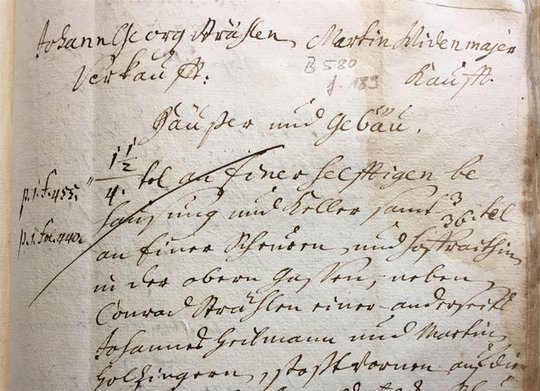 Johann Georg Strählen, Martin Widenmajer
Verkaufft. Kaufft.
B 580
f. 183
Häußer und Gebäu.
p. 1. f. 455. " 1 1/2 / 4. tel an Einer helfftigen be
p. 1. fol. 440. hausung und Keller samt 3/36 tel
an Einer Scheuren, und Hofraithin,
in der obern Gassen, neben
Conrad Strählen einer- anderseits
Johannes Heilmann und Martin
Holzingern, stoßt vornen auf die